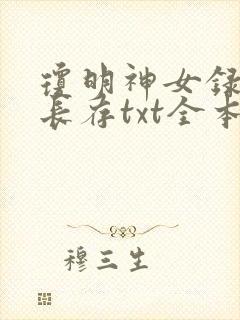 琼明神女录
长存txt全本
穆三生